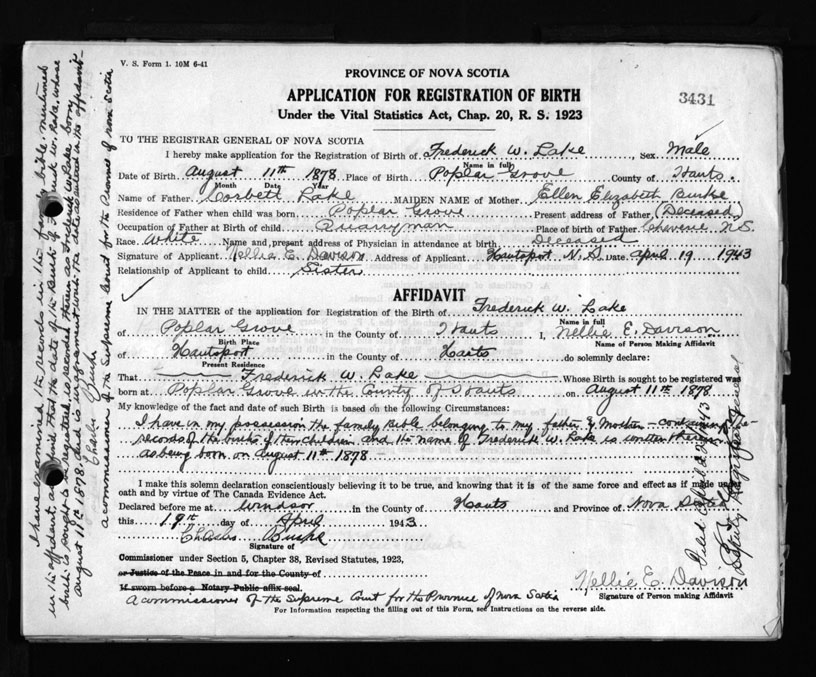 V. S. Form 1. 10M 6-41
PROVINCE OF NOVA SCOTIA
APPLICATION FOR REGISTRATION OF BIRTH
3431
Under the Vital Statistics Act, Chap. 20, R. S. 1923
TO THE REGISTRAR GENERAL OF NOVA SCOTIA
I hereby make application for the Registration of Birth of Frederick W. Lake Sex Male
Name in full
Date of Birth August 11th 1878 Place of Birth Poplar Grove County of Hants.
Month Date Year
Name of Father Corbett Lake MAIDEN NAME of Mother Ellen Elizabeth Burke
Residence of Father when child was born Poplar Grove Present address of Father (Deceased)
Occupation of Father at Birth of child Quarryman Place of birth of Father Cheverie N.S.
Race White Name and present address of Physician in attendance at birth Deceased
Signature of Applicant Nellie E. Davison Address of Applicant Hantsport N.S. Date April 19 1943
Relationship of Applicant to child Sister
AFFIDAVIT
IN THE MATTER of the application for Registration of the Birth of Frederick W. Lake
Name in full
of Poplar Grove in the County of Hants I, Nellie E. Davison
Birth Place Name of Person Making Affidavit
of Hantsport in the County of Hants do solemnly declare:
Present Residence
That Frederick W. Lake Whose Birth is sought to be registered was
born at Poplar Grove in the County of Hants on August 11th 1878
My knowledge of the fact and date of such Birth is based on the following Circumstances:
I have in my possession the family Bible belonging to my father & Mother - containing the
records of the births of their children and the name of Frederick W. Lake is written therein
as being born on August 11th 1878
I make this solemn declaration conscientiously believing it to be true, and knowing that it is of the same force and effect as if made under
oath and by virtue of The Canada Evidence Act.
Declared before me at Windsor in the County of Hants and Province of Nova Scotia
this 19th day of April 1943
Chas Burke
Signature of
Commissioner under Section 5, Chapter 38, Revised Statutes, 1923,
or Justice of the Peace in and for the County of
If sworn before a Notary Public affix seal.
A commissioner of the Supreme Court for the Province of Nova Scotia
Nellie E. Davison
Signature of Person making Affidavit
For Information respecting the filling out of this Form, see Instructions on the reverse side.
I have examined the records in the family bible, mentioned
in the affidavit and find that the date of the Birth of Frederick W. Lake, whose
birth is sought to be registered, is recorded therein as Frederick W. Lake born
August 11th 1878 and is in agreement with the date as entered in the affidavit -
Chas Burke
A commissioner of the Supreme Court for the Province of Nova Scotia
Filed April 22 1943
Deputy Registrar General